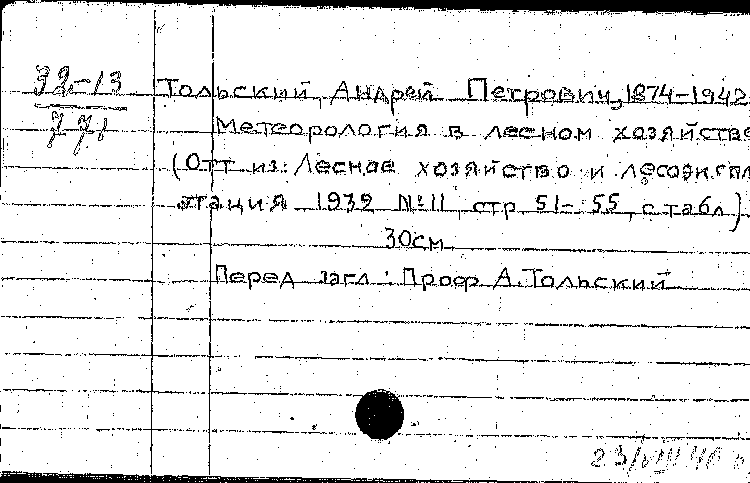 32-13
771
Тольский, Андрей Петрович, 1874-1942
Метеорология в лесном хозяйстве
(Отт из: Лесное хозяйство и лесоэкспл
атация 1932 №11, стр 51-55, с табл)
30см.
Перед загл: Проф А. Тольский
23/VIII 40